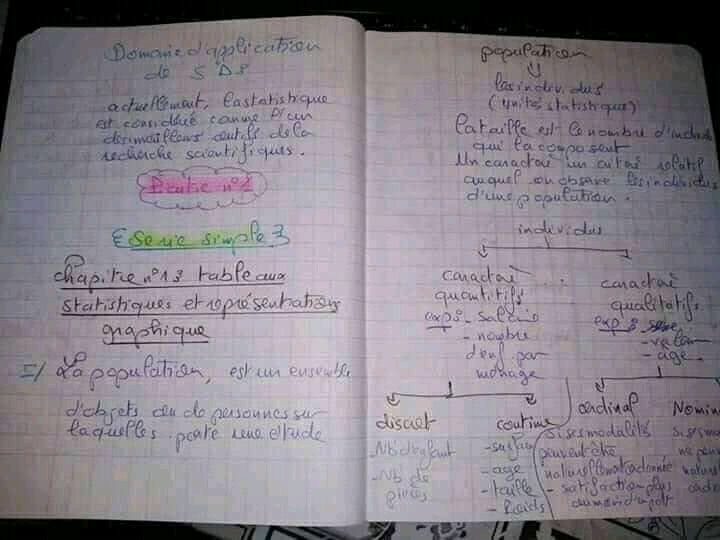 Domaine d'application
de S D S
actuellement, la statistique
est considérée comme l'un
des meilleurs outils de la
recherche scientifiques.
Partie n°1
{ Serie simple }
chapitre n°1 : tableaux
statistiques et représentations
graphique
I/ La population, est un ensemble
d'objets ou de personnes sur
laquelles porte une étude
population
les individus
(unité statistique)
La taille est le nombre d'individ
qui la composent
Un caractère un critère relatif
auquel on observe les individus
d'une population.
individus
caractère
quantitifs
exp : - salaire
- nombre
d'enf par
ménage
caractère
qualitatifs
exp :
- age
discret
- Nb d'enfant
- Nb de
pièces
continue
- surface
- age
- taille
- Poids
ordinal
si ses modalités
peuvent être
naturellement ordonnée
- satisfaction plus
ou moins
Nomin
si ses mo
ne peuv
nature
ordo